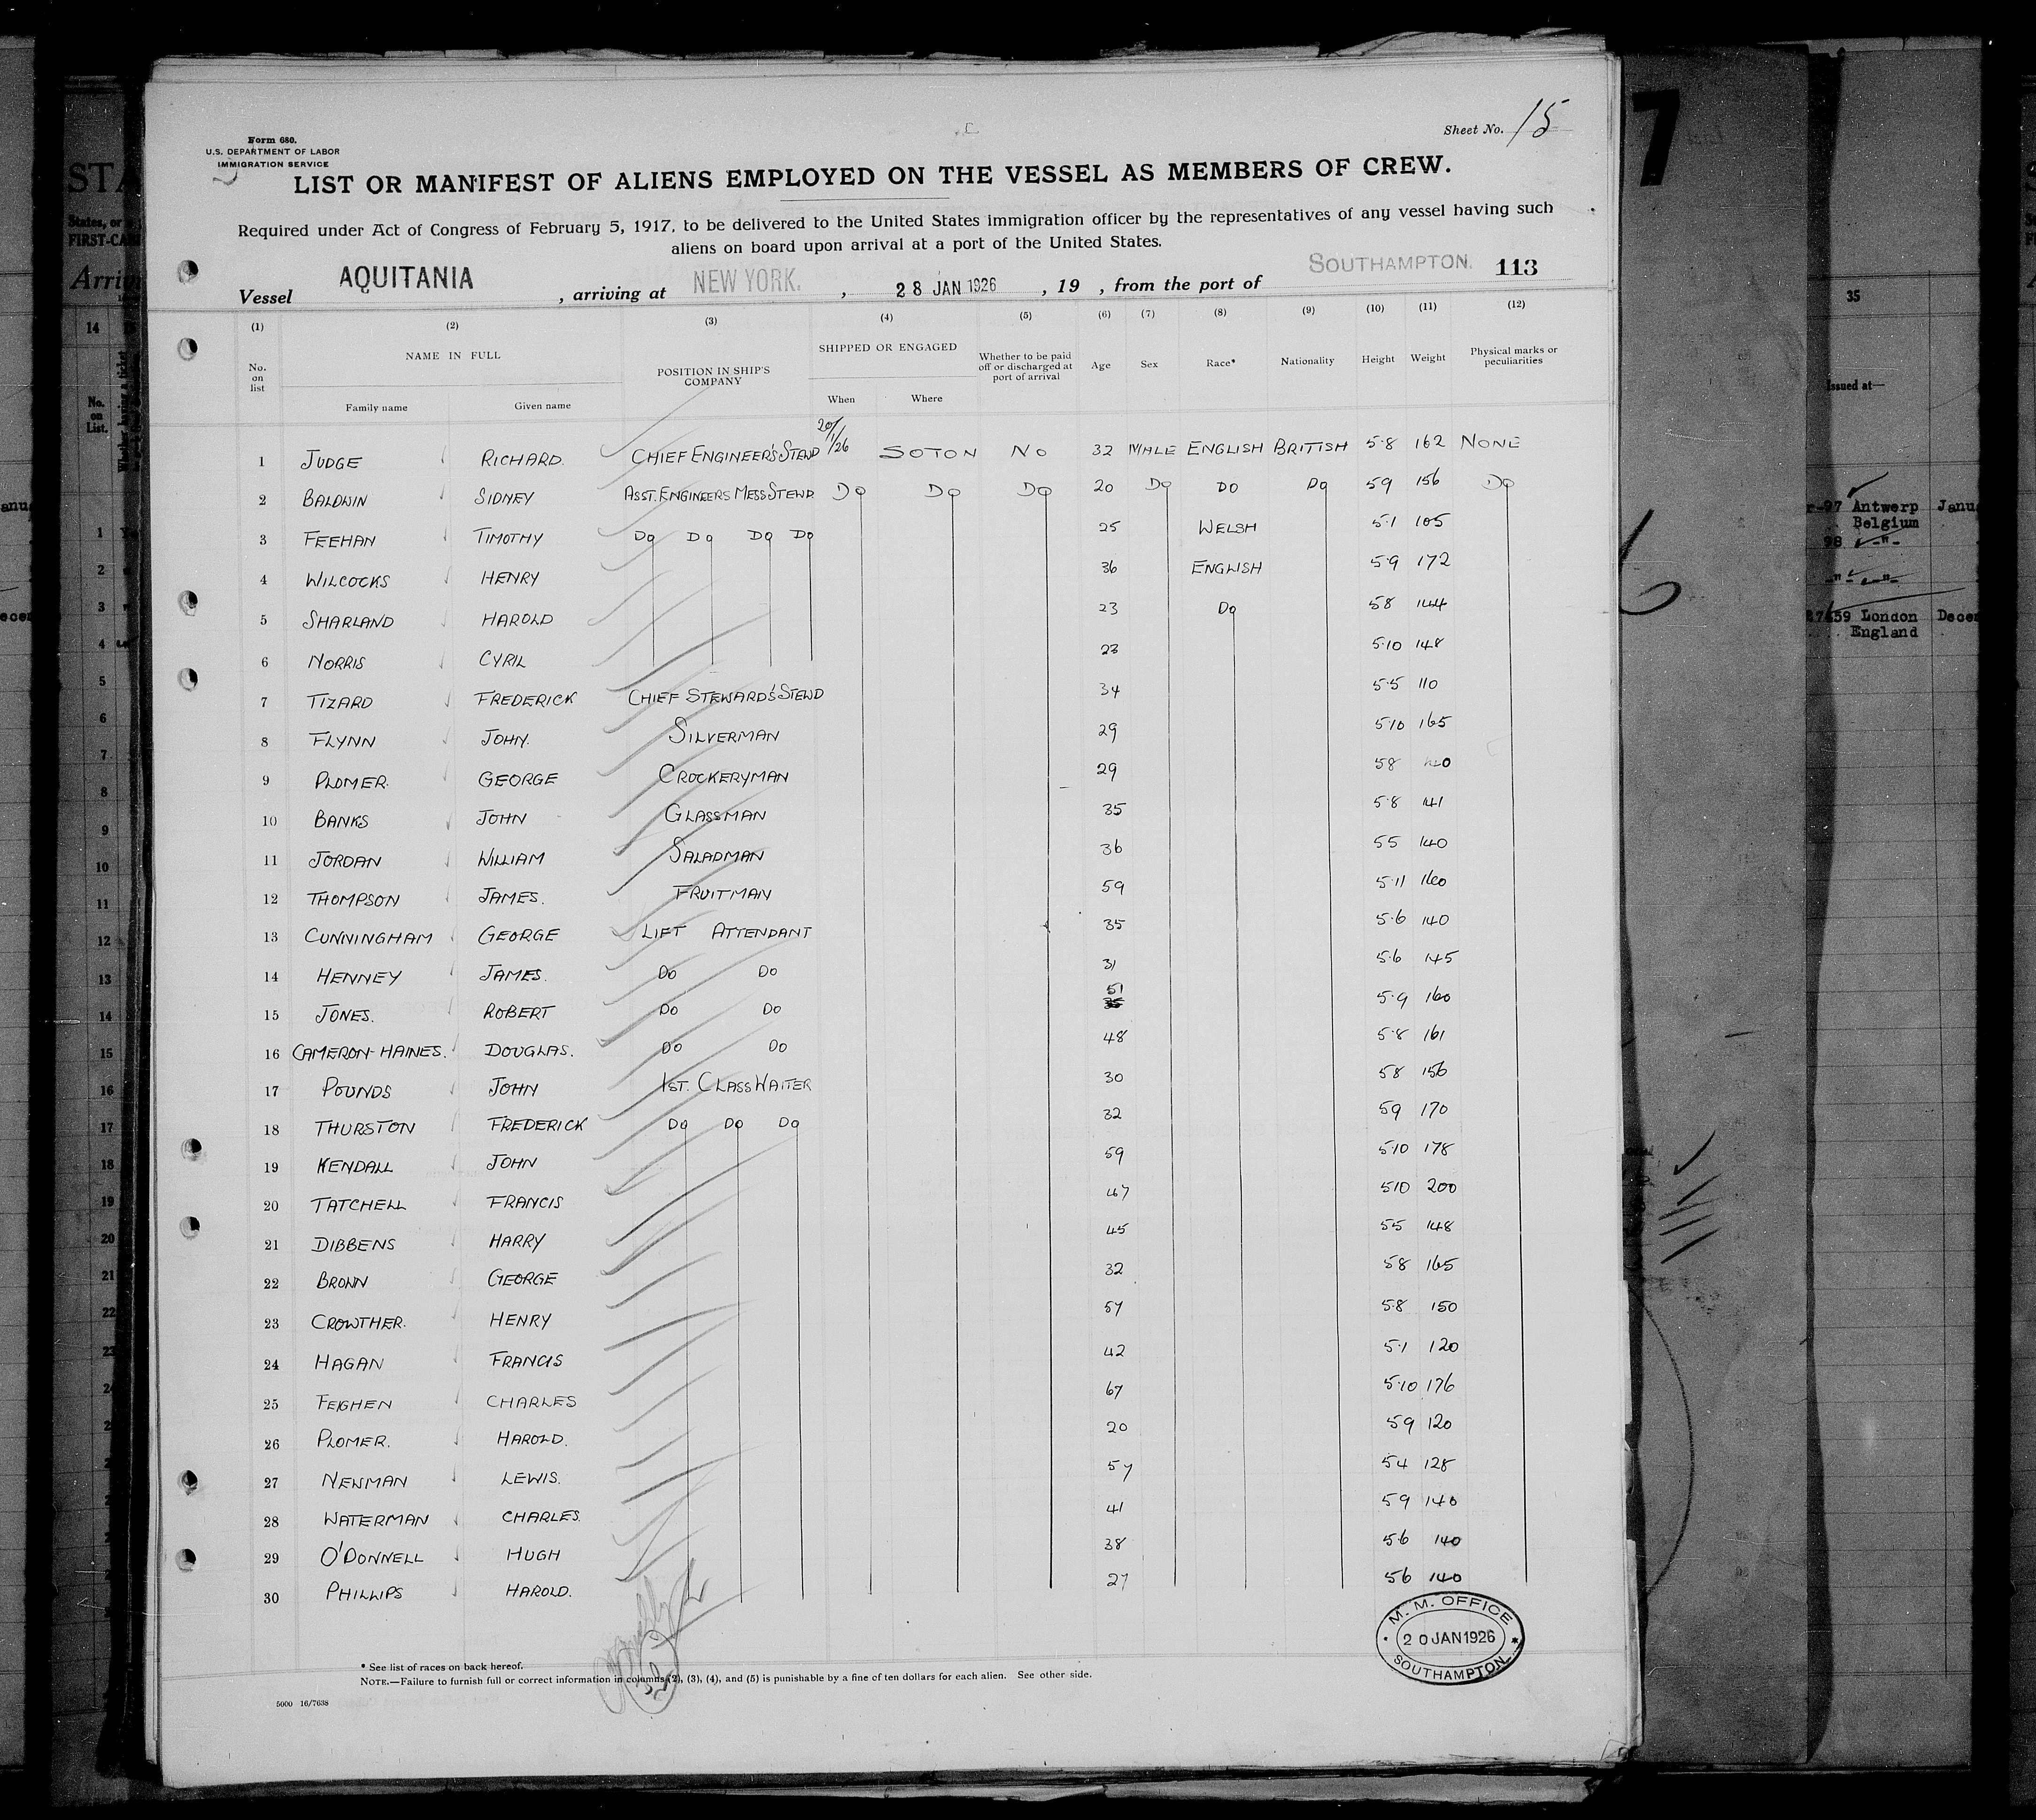 Sheet No. 15
Form 680.
U.S. DEPARTMENT OF LABOR
IMMIGRATION SERVICE
LIST OR MANIFEST OF ALIENS EMPLOYED ON THE VESSEL AS MEMBERS OF CREW.
Required under Act of Congress of February 5, 1917, to be delivered to the United States immigration officer by the representatives of any vessel having such
aliens on board upon arrival at a port of the United States.
Vessel AQUITANIA, arriving at NEW YORK., 28 JAN 1926, 19 , from the port of SOUTHAMPTON. 113
(1) (2) (3) (4) (5) (6) (7) (8) (9) (10) (11) (12)
No. on list NAME IN FULL POSITION IN SHIP'S COMPANY SHIPPED OR ENGAGED Whether to be paid off or discharged at port of arrival Age Sex Race* Nationality Height Weight Physical marks or peculiarities
Family name Given name When Where
1 JUDGE RICHARD. CHIEF ENGINEER'S STEWD 20/1/26 SOTON NO 32 MALE ENGLISH BRITISH 5·8 162 NONE
2 BALDWIN SIDNEY ASST. ENGINEERS MESS STEWD DO DO DO 20 DO DO DO 59 156 DO
3 FEEHAN TIMOTHY DO DO DO DO 25 WELSH 5·1 105
4 WILCOCKS HENRY 36 ENGLISH 5·9 172
5 SHARLAND HAROLD 23 DO 58 144
6 NORRIS CYRIL 23 5·10 148
7 TIZARD FREDERICK CHIEF STEWARD'S STEWD 34 5·5 110
8 FLYNN JOHN. SILVERMAN 29 5·10 165
9 PLOMER. GEORGE CROCKERYMAN 29 58
10 BANKS JOHN GLASSMAN 35 5·8 141
11 JORDAN WILLIAM SALADMAN 36 55 140
12 THOMPSON JAMES. FRUITMAN 59 5·11 160
13 CUNNINGHAM GEORGE LIFT ATTENDANT 35 5·6 140
14 HENNEY JAMES. DO DO 31 5·6 145
15 JONES. ROBERT DO DO 51 5·9 160
16 CAMERON-HAINES. DOUGLAS. DO DO 48 5·8 161
17 POUNDS JOHN 1ST. CLASS WAITER 30 58 156
18 THURSTON FREDERICK DO DO DO 32 59 170
19 KENDALL JOHN 59 510 178
20 TATCHELL FRANCIS 47 510 200
21 DIBBENS HARRY 45 55 148
22 BROWN GEORGE 32 58 165
23 CROWTHER. HENRY 57 5·8 150
24 HAGAN FRANCIS 42 5·1 120
25 FEIGHEN CHARLES 67 5·10 176
26 PLOMER. HAROLD. 20 59 120
27 NEWMAN LEWIS. 57 54 128
28 WATERMAN CHARLES. 41 59 140
29 O'DONNELL HUGH 38 5·6 140
30 PHILLIPS HAROLD. 27 56 140
M. M. OFFICE
20 JAN 1926
SOUTHAMPTON
* See list of races on back hereof.
NOTE.—Failure to furnish full or correct information in columns (2), (3), (4), and (5) is punishable by a fine of ten dollars for each alien. See other side.
5000 16/7638
7
35
Issued at—
Antwerp
Belgium
98
London
England
14
No.
on
List.